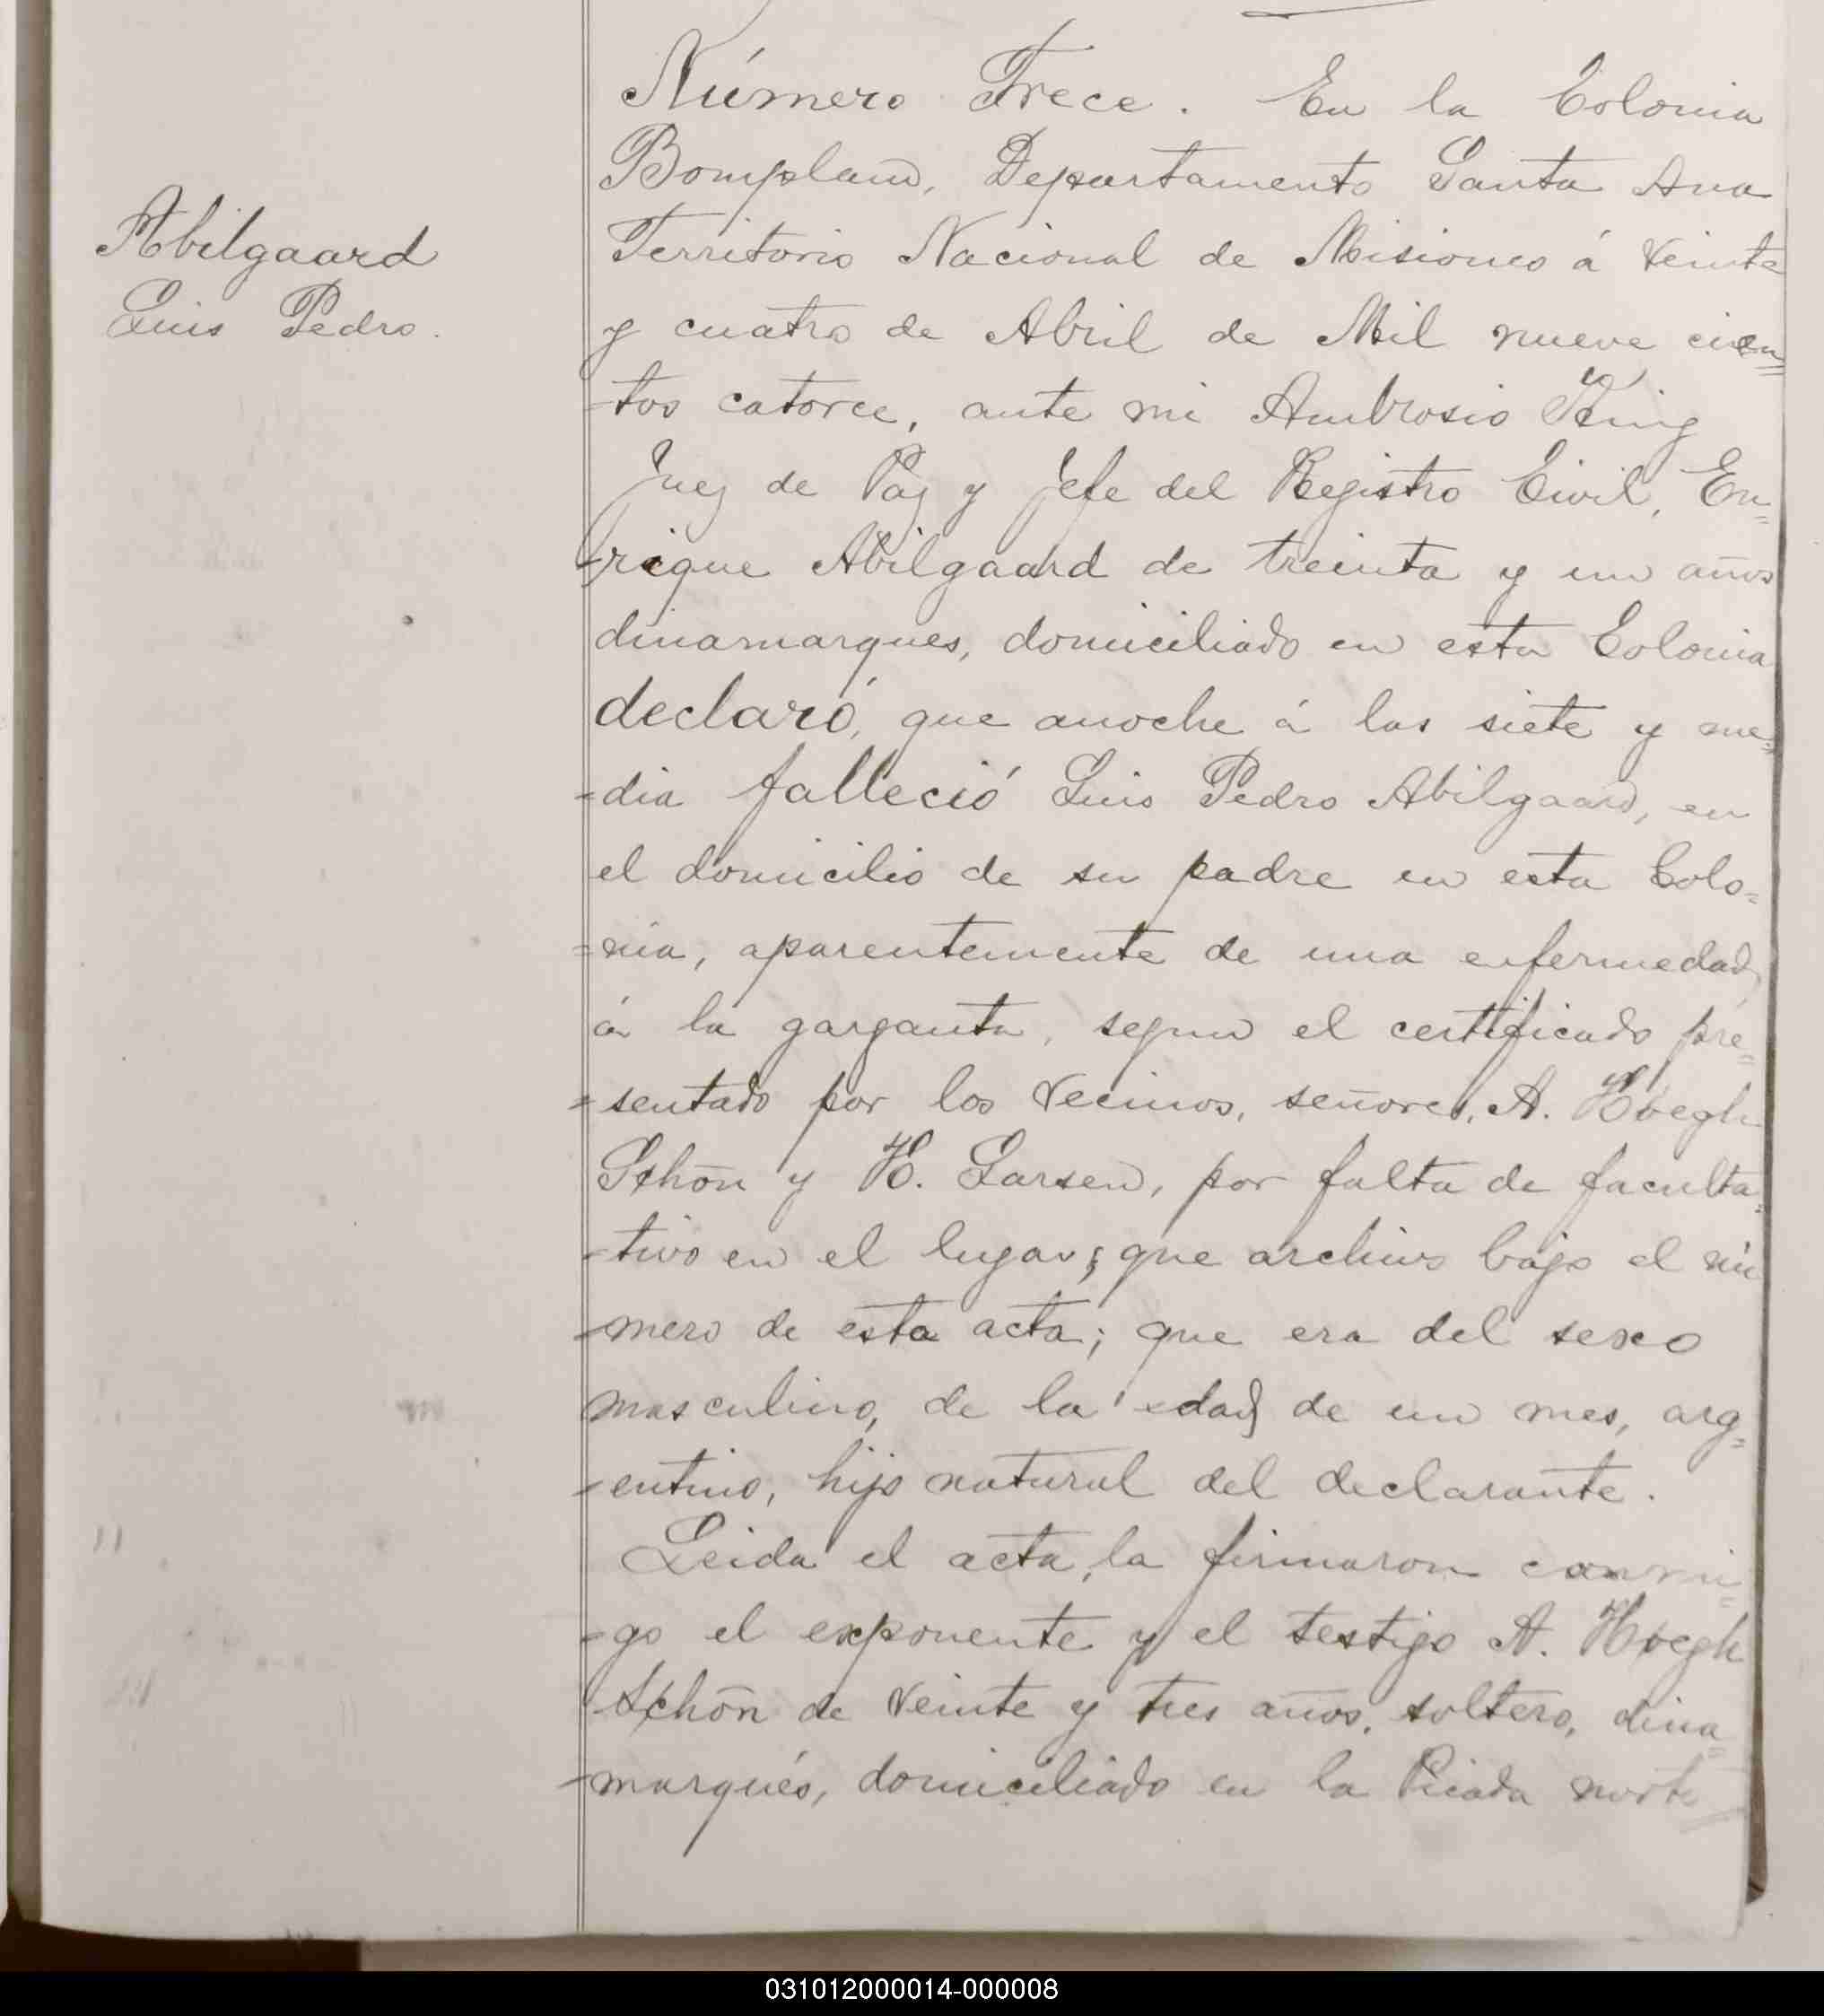 Número Trece. En la Colonia
Bompland, Departamento Santa Ana
Abilgaard
Territorio Nacional de Misiones á veinte
Luis Pedro.
y cuatro de Abril de Mil nueve cien=
=tos catorce, ante mi Ambrosio King
Juez de Paz y Jefe del Registro Civil, En=
=rique Abilgaard de treinta y un años
dinamarques, domiciliado en esta Colonia
declaró, que anoche á las siete y me=
=dia falleció Luis Pedro Abilgaard, en
el domicilio de su padre en esta Colo=
=nia, aparentemente de una enfermedad,
á la garganta, segun el certificado pre=
=sentado por los vecinos, señores, A. Hoegh
Schön y H. Larsen, por falta de faculta=
=tivo en el lugar; que archivo bajo el nú
=mero de esta acta; que era del sexo
masculino, de la edad de un mes, arg=
=entino, hijo natural del declarante.
Leida el acta, la firmaron conmi=
=go el exponente y el testigo A. Hoegh
Schön de veinte y tres años, soltero, dina=
=marqués, domiciliado en la Picada norte
031012000014-000008